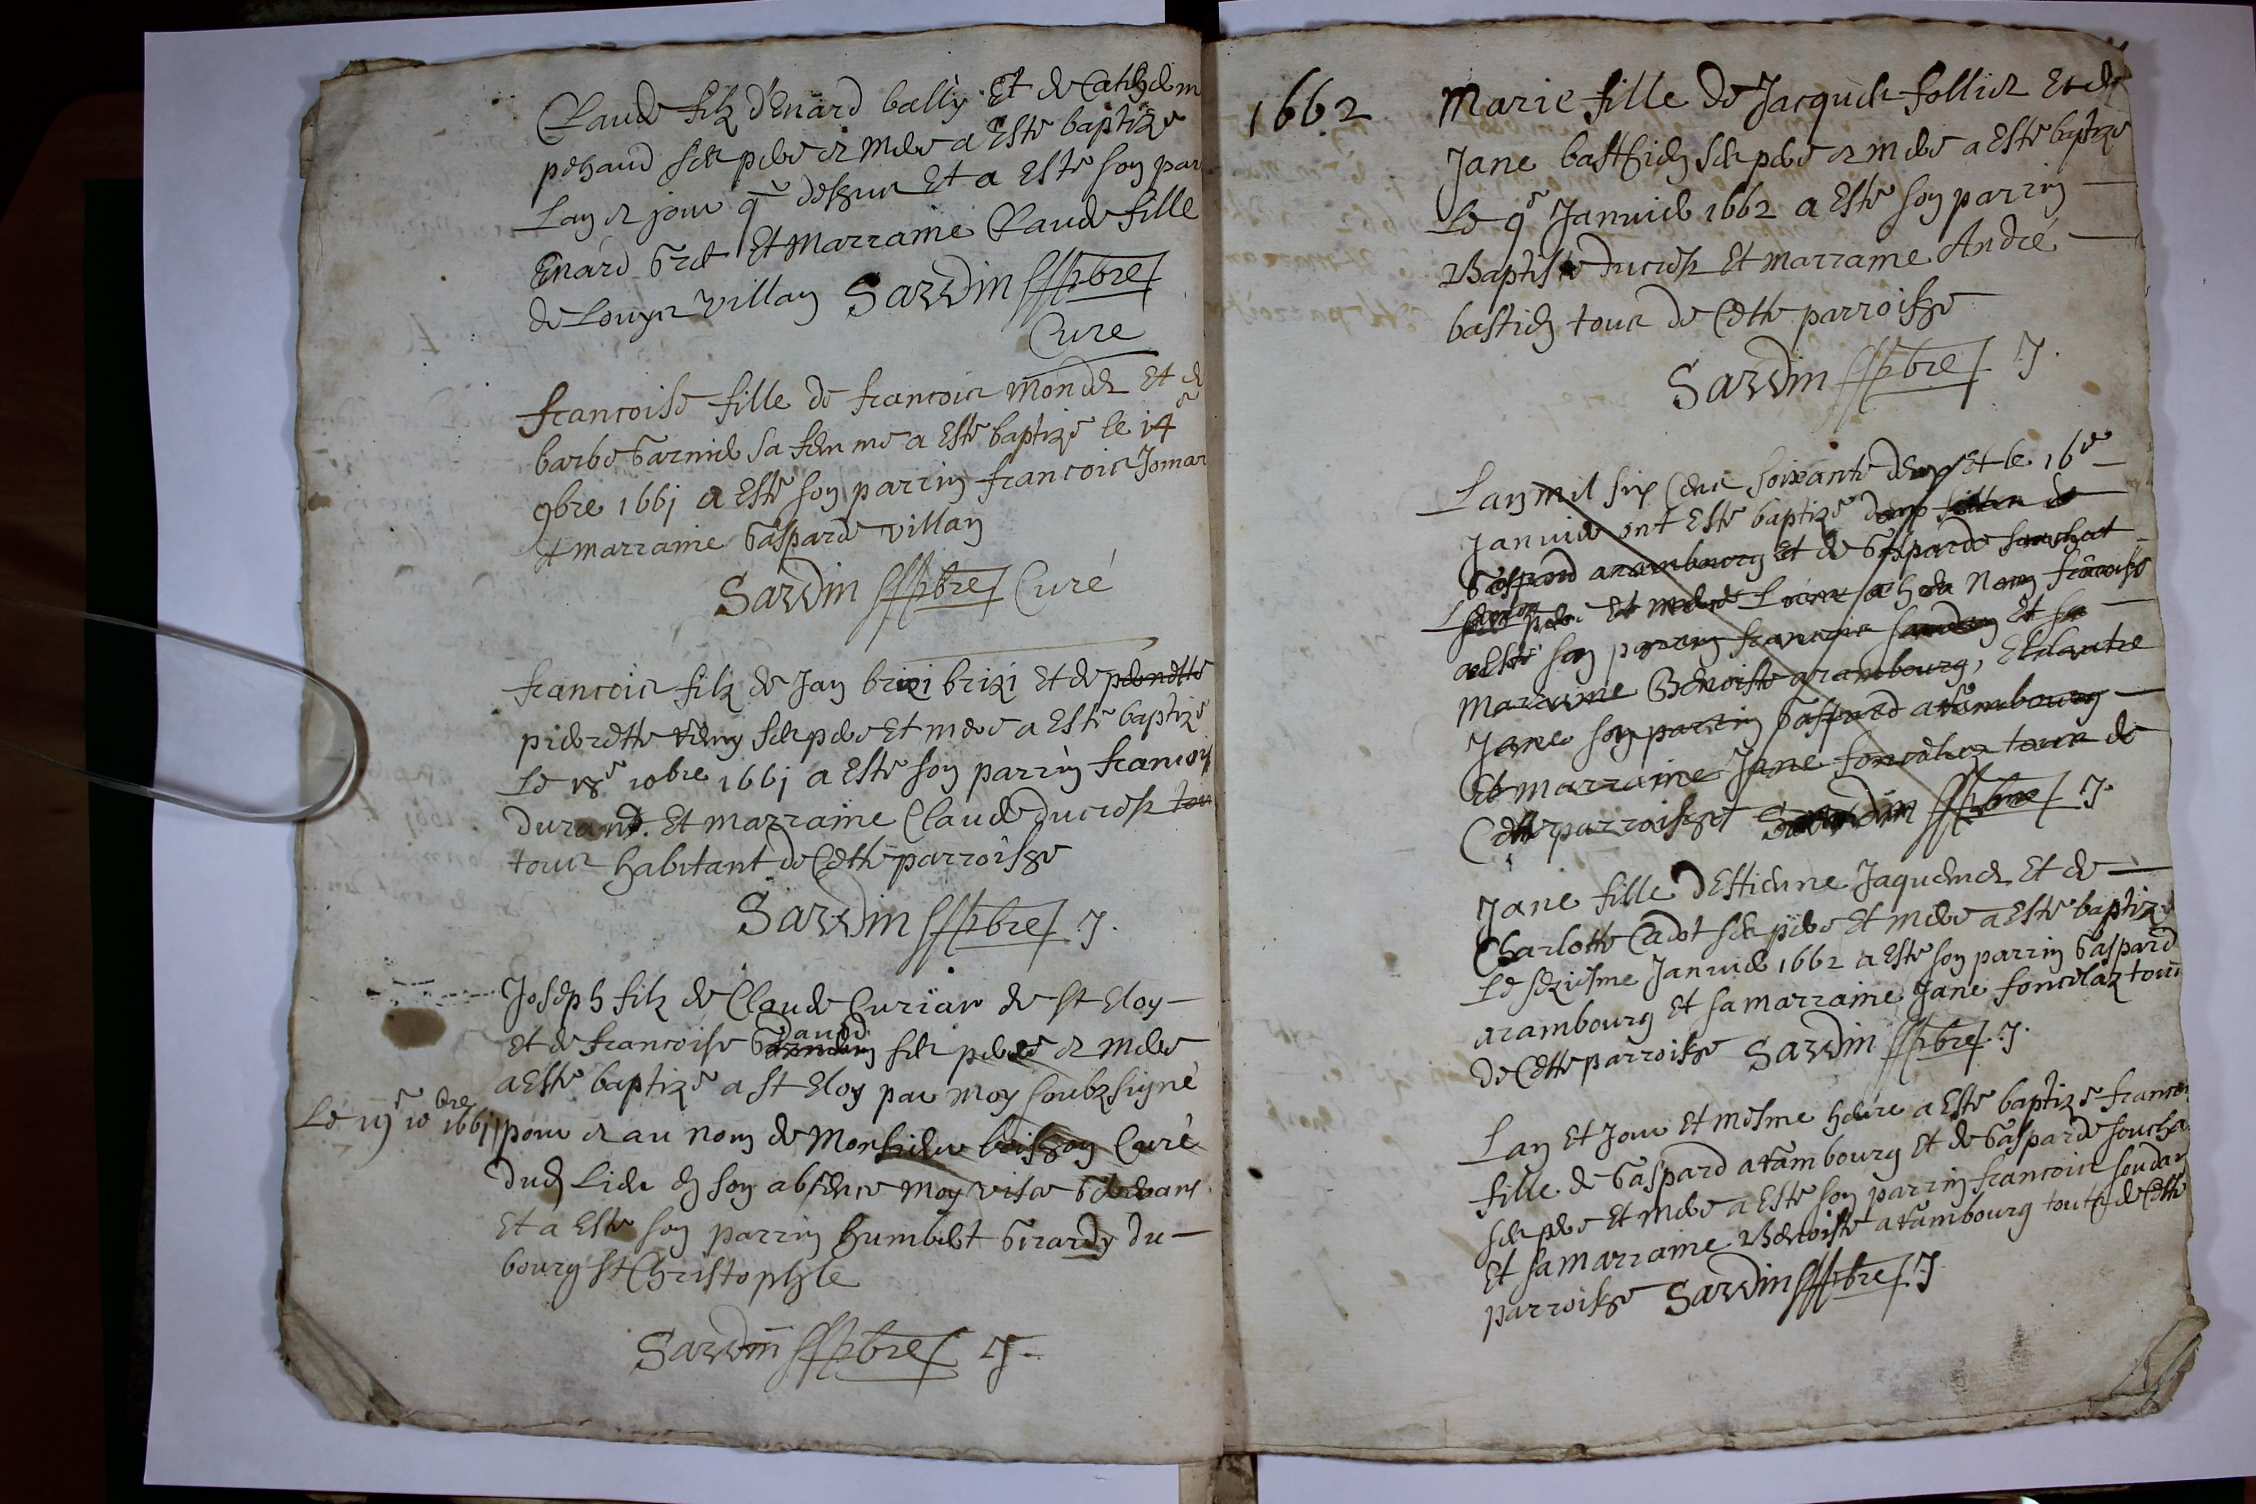 Claude filz d'Enard bally Et de Cath
pehaud ses pere et mere a Este baptizé
Lan et jour q dessus Et a Este son par
Enard Et Marraine Claude fille
de Louys Villan Sardin pbre
Curé
francoise fille de francois Monder Et de
barbe Garnier sa femme a Este baptizé le 14e
9bre 1661 a Esté son parrin francois Jomar
et marraine Gasparde villan
Sardin pbre Curé
francois filz de Jan brizi Et de
pierrette ses pere Et mere a Este baptizé
Le 18e 10bre 1661 a Este son parrin francois
durand. Et marraine Claude ducros tou
tous habitant de Cette parroisse
Sardin pbre J.
Joseph filz de Claude Curiar de st Eloy
Et de francoise Daudé ses pere et mere
a Este baptizé a st Eloy par moy soubzsigné
Le 19e 10bre 1661 pour et au nom de Monsieur brisson Curé
dud Lieu En son absence moy
Et a Este son parrin humbert Girardy du
bourg st Christophle
Sardin pbre J.
1662
Marie fille de Jacques follier Et de
Jane basthien ses pere et mere a este baptizé
Le 9e Janvier 1662 a Este son parrin
Baptiste ducros Et marraine André
bastien tous de Cette parroisse
Sardin pbre J.
Lan mil six Cens soixante deux Et le 16e
Janvier ont Este baptizé deux filles de
Gaspard arambourg Et de Gasparde souchat
pere Et mere Lune a heu nom francoise
a Esté son parrin francois soudan Et sa
Marraine Benoiste arambourg, Et lautre
Jane son parrin Gaspard arambourg
Et marraine Jane foncelaz tous de
Cette parroisse Sardin pbre J.
Jane fille d'Estienne Jaquemer Et de
Charlotte Cadot ses pere Et mere a este baptizé
Le seziesme Janvier 1662 a este son parrin Gaspard
arambourg Et sa marraine Jane foncelaz tous
de Cette parroisse Sardin pbre J.
Lan Et Jour Et mesme heure a Este baptizé francoi
fille de Gaspard arambourg Et de Gasparde soucha
ses pere Et mere a Este son parrin francois soudan
Et sa marraine Benoiste arambourg tous de Cette
parroisse Sardin pbre J.